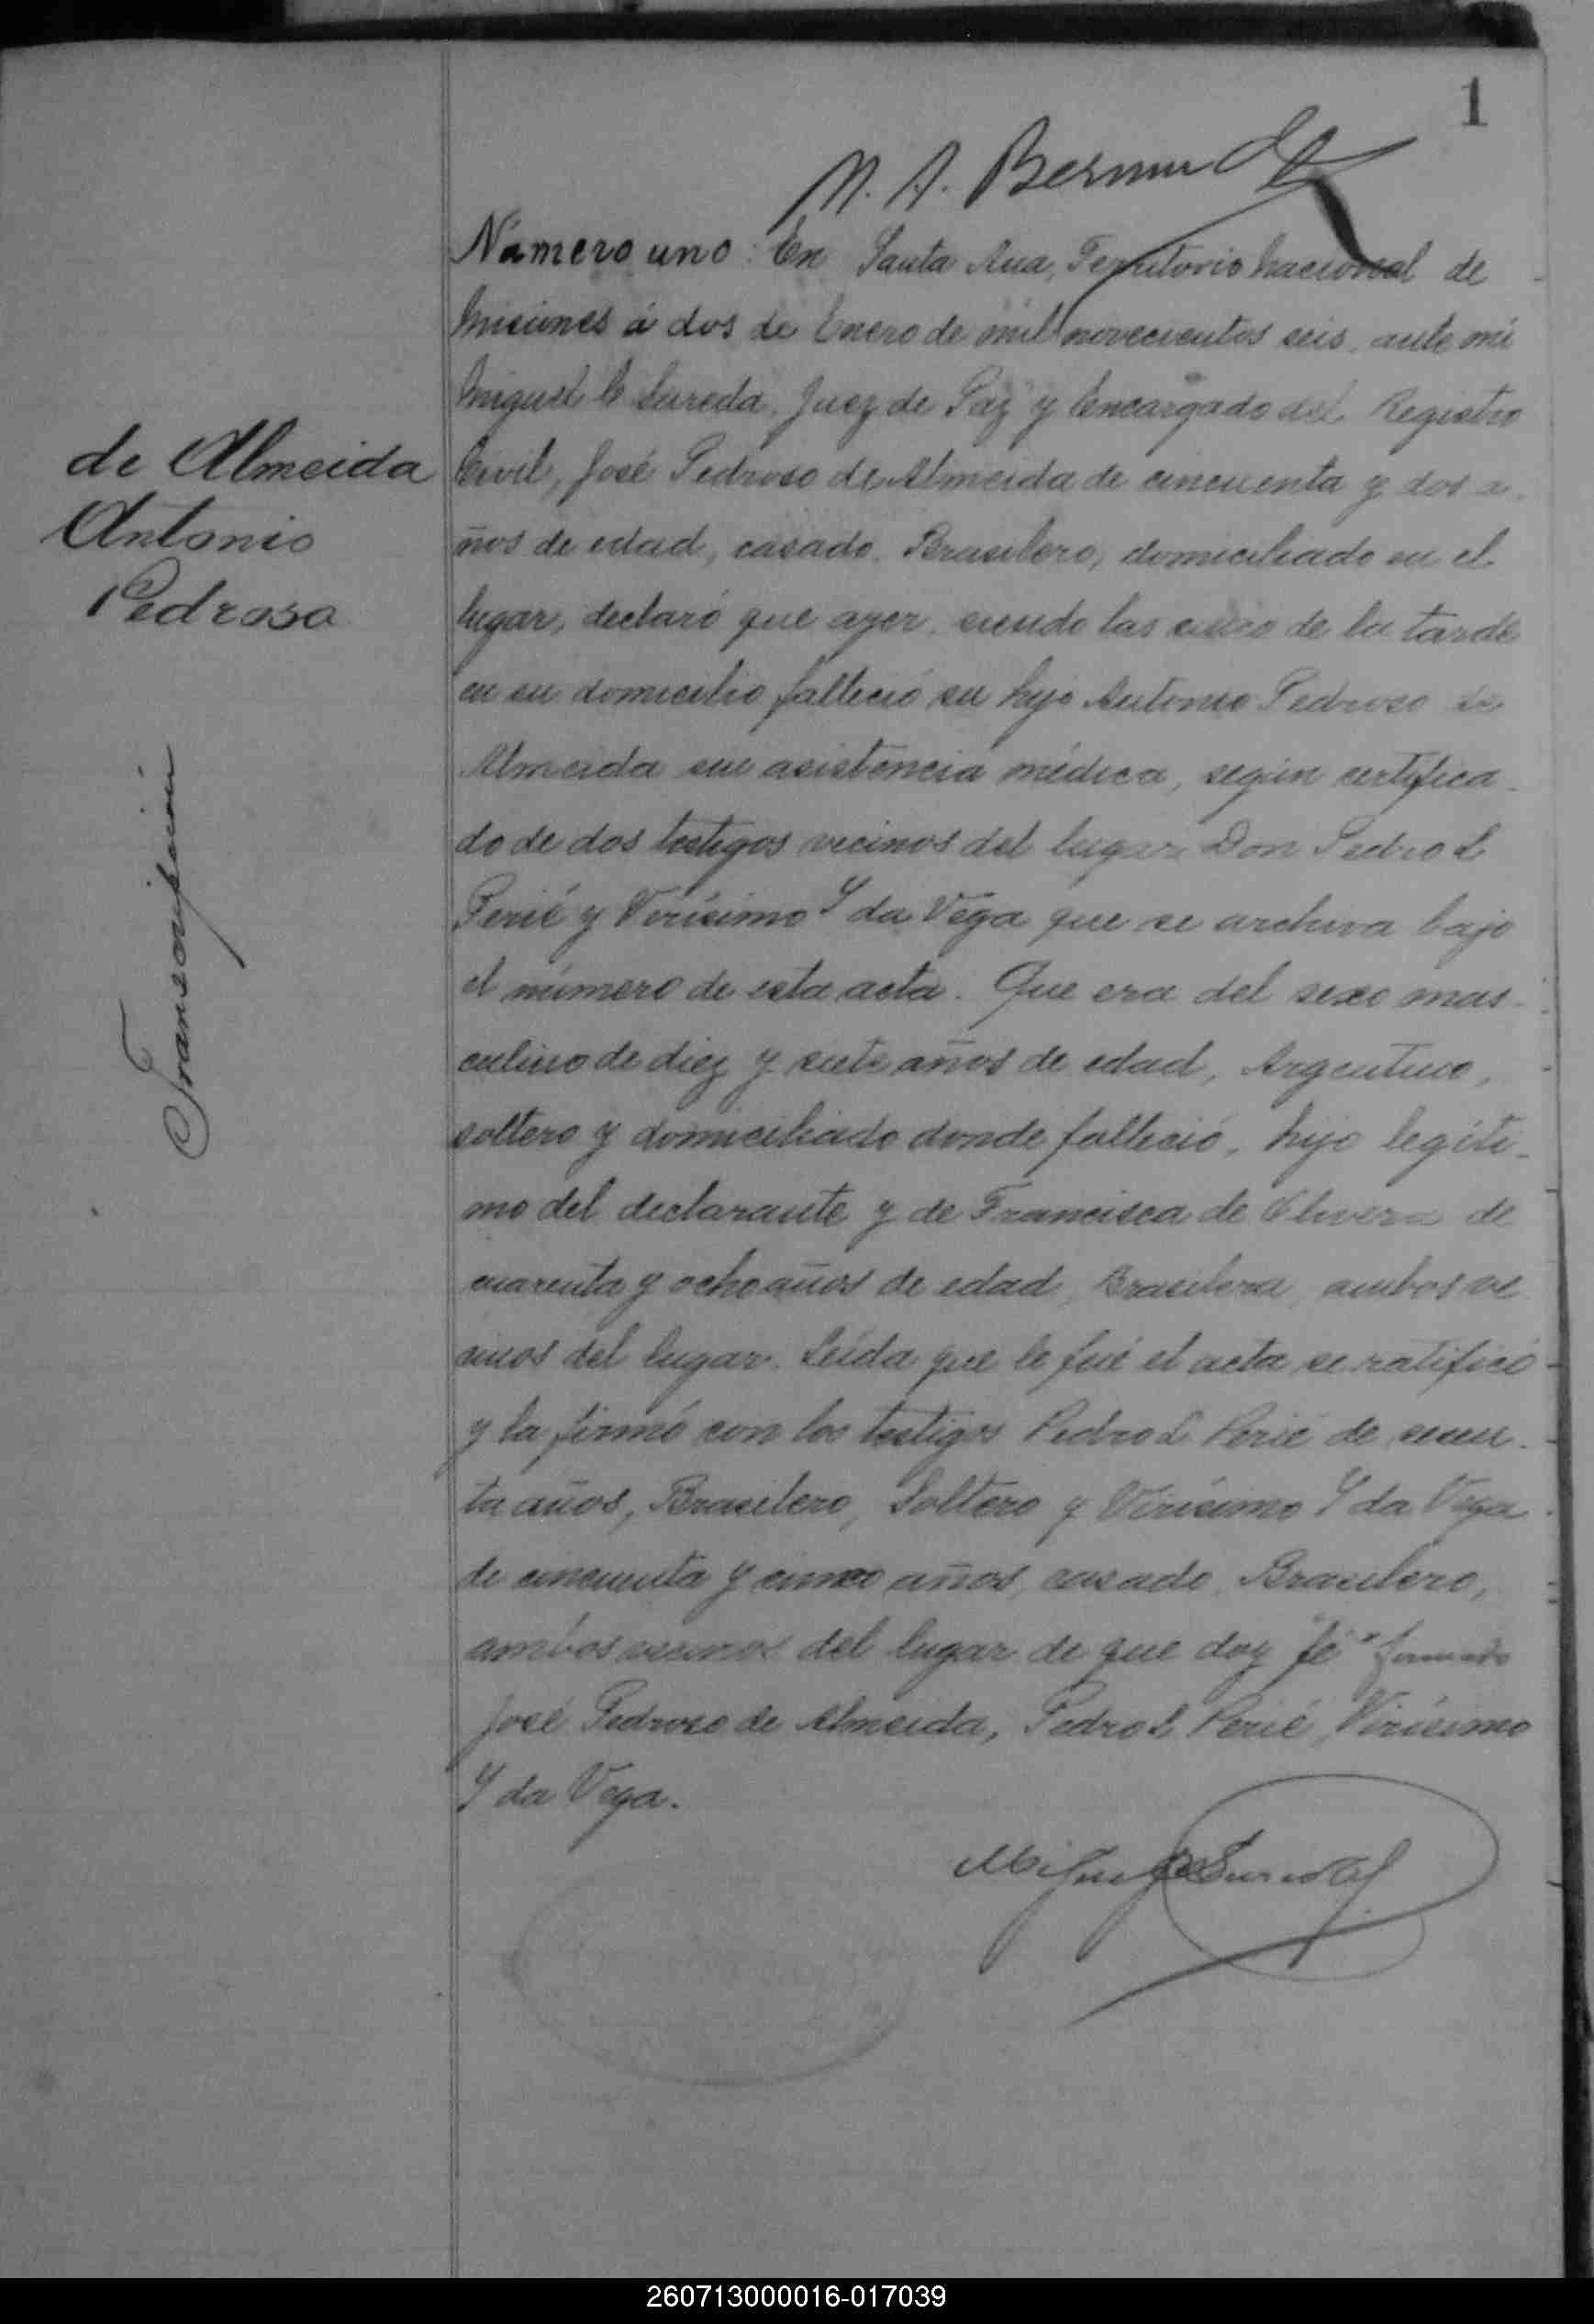 1
M. A. Bermudez
Número uno: En Santa Ana, Territorio nacional de
Misiones á dos de Enero de mil novecientos seis, ante mi
Miguel C Sureda, Juez de Paz y Encargado del Registro
Civil, José Pedroso de Almeida de cincuenta y dos a-
ños de edad, casado, Brasilero, domiciliado en el
lugar, declaró que ayer, siendo las cinco de la tarde
en su domicilio falleció su hijo Antonio Pedroso de
Almeida sin asistencia médica, según certifica-
do de dos testigos vecinos del lugar Don Pedro L
Perié y Virisimo Y da Vega que se archiva bajo
el número de esta acta. Que era del sexo mas-
culino de diez y siete años de edad, Argentino,
soltero y domiciliado donde falleció, hijo legíti-
mo del declarante y de Francisca de Olivera de
cuarenta y ocho años de edad, Brasilera, ambos ve
cinos del lugar. Leída que le fué el acta se ratificó
y la firmó con los testigos Pedro L Perié de sesen-
ta años, Brasilero, Soltero y Virisimo Y da Vega
de cincuenta y cinco años, casado, Brasilero,
ambos vecinos del lugar de que doy fé" firmado
José Pedroso de Almeida, Pedro L Perié, Virisimo
Y da Vega.
Miguel C Sureda
de Almeida
Antonio
Pedroso
Transcripción
260713000016-017039